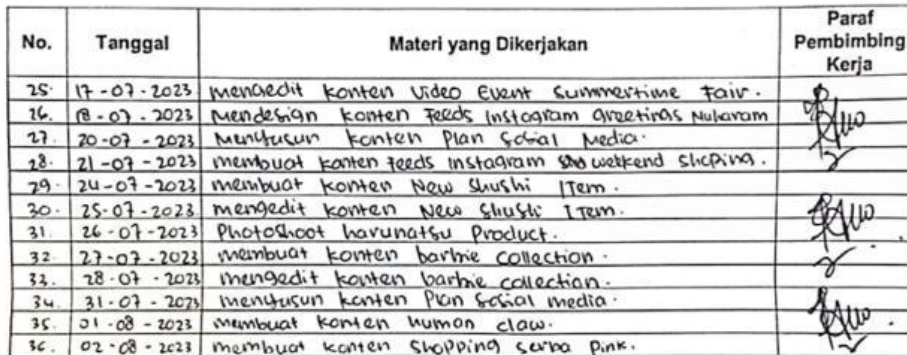 No. Tanggal Materi yang Dikerjakan Paraf Pembimbing Kerja
25. 17-07-2023 mengedit konten video Event Summertime Fair.
26. 18-07-2023 Mendesign konten Feeds Instagram greetings Muharam
27. 20-07-2023 Menyusun konten Plan Sosial Media.
28. 21-07-2023 membuat konten feeds Instagram weekend shoping.
29. 24-07-2023 membuat konten New Shushi ITem.
30. 25-07-2023 mengedit konten New Shushi ITem.
31. 26-07-2023 Photoshoot harunatsu Product.
32. 27-07-2023 membuat konten barbie collection.
33. 28-07-2023 mengedit konten barbie collection.
34. 31-07-2023 menyusun konten Plan Sosial media.
35. 01-08-2023 membuat konten human claw.
36. 02-08-2023 membuat konten Shopping serba Pink.